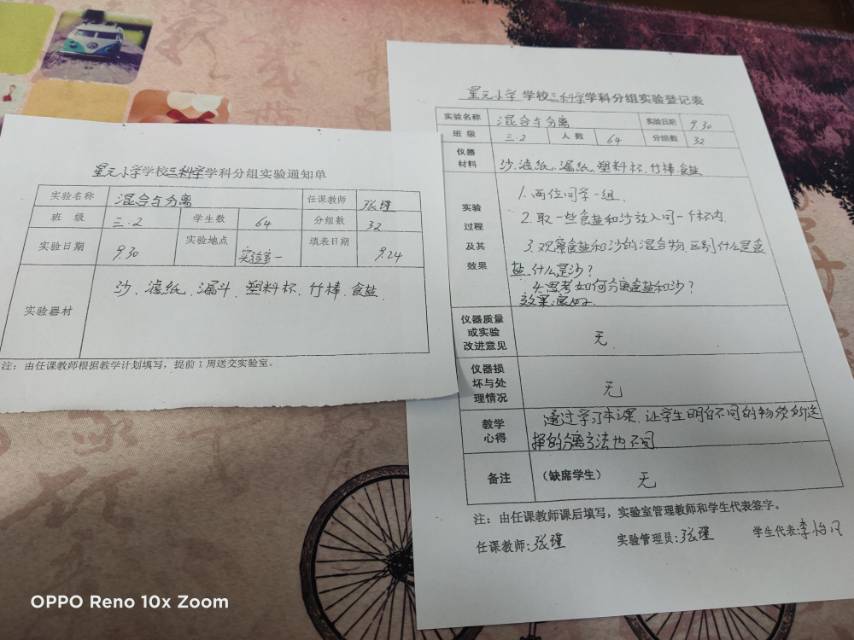 星元小学学校三科学学科分组实验通知单
实验名称 混合与分离 任课教师 张瑾
班 级 三.2 学生数 64 分组数 32
实验日期 9.30 实验地点 实验室一 填表日期 9.24
实验器材 沙、滤纸、漏斗、塑料杯、竹棒、食盐
注:由任课教师根据教学计划填写,提前1周送交实验室。
星元小学 学校三科学学科分组实验登记表
实验名称 混合与分离 实验日期 9.30
班 级 三.2 人 数 64 分组数 32
仪器
材料
沙、滤纸、漏纸、塑料杯、竹棒、食盐
实验
过程
及其
效果
1.两位同学一组.
2.取一些食盐和沙放入同一个杯内.
3.观察食盐和沙的混合物,区别什么是食
盐,什么是沙?
4.思考如何分离食盐和沙?
效果:良好.
仪器质量
或实验
改进意见
无.
仪器损
坏与处
理情况
无
教学
心得
通过学习本课,让学生明白不同的物质所选
择的分离方法也不同
备注 (缺席学生) 无
注:由任课教师课后填写,实验室管理教师和学生代表签字。
任课教师:张瑾 实验管理员:张瑾 学生代表:李
OPPO Reno 10x Zoom